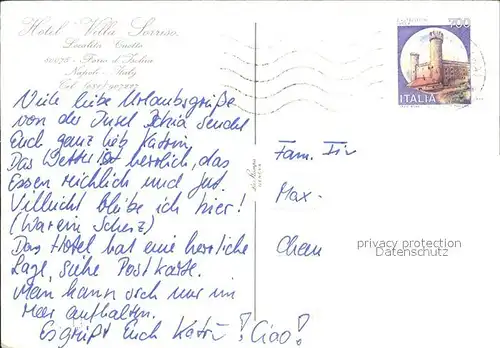 Hotel - Villa Sorriso
Localita Citetto
80075 - Forio d'Ischia
Napoli - Italy
Tel. (081) 907227
Viele liebe Urlaubsgrüße
von der Insel Ischia sendet
Euch ganz lieb Katrin.
Das Wetter ist herrlich, das
Essen reichlich und gut.
Villeicht bleibe ich hier!
(War ein Scherz)
Das Hotel hat eine herrliche
Lage, siehe Postkarte.
Man kann sich nur im
Meer aufhalten.
Es grüßt Euch Katrin! Ciao!
700
ITALIA
Fam.
Max-
Cham
privacy protection
Datenschutz